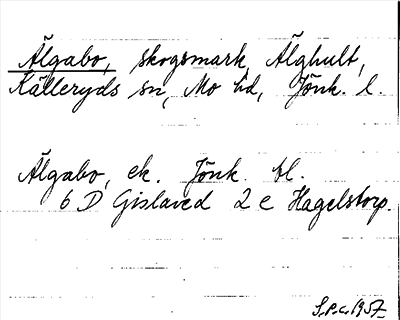 Älgabo, skogsmark, Älghult,
Källeryds sn, Mo hd, Jönk. l.
Älgabo, ek. Jönk. bl.
6 D Gislaved 2 e Hagelstorp.
S.P.c. 1957